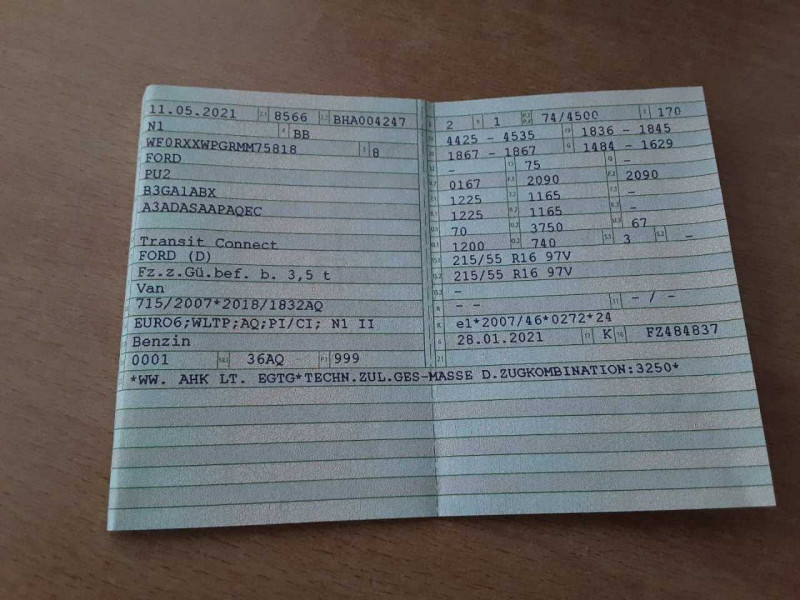 11.05.2021 8566 BHA004247
N1 BB
WF0RXXWPGRMM75818 8
FORD
PU2
B3GA1ABX
A3ADASAAPAQEC
Transit Connect
FORD (D)
Fz.z.Gü.bef. b. 3,5 t
Van
715/2007*2018/1832AQ
EURO6;WLTP;AQ;PI/CI; N1 II
Benzin
0001 36AQ 999
2 1 74/4500 170
4425 - 4535 1836 - 1845
1867 - 1867 1484 - 1629
- 75 -
0167 2090 2090
1225 1165 -
1225 1165 -
70 3750 67
1200 740 3 -
215/55 R16 97V
215/55 R16 97V
-
- - - / -
e1*2007/46*0272*24
28.01.2021 K FZ484837
*WW. AHK LT. EGTG*TECHN.ZUL.GES-MASSE D.ZUGKOMBINATION:3250*